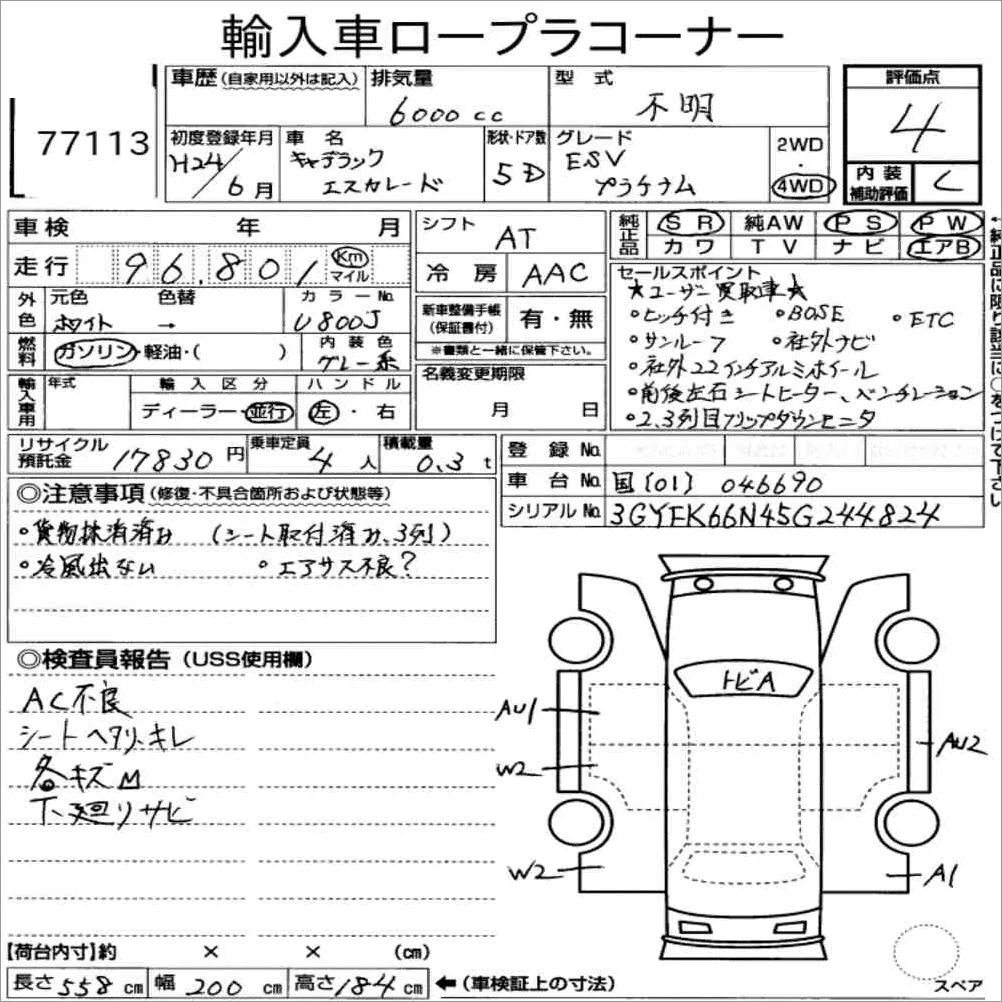 輸入車ロープラコーナー
77113
車歴(自家用以外は記入)
排気量 6000cc
型式 不明
評価点 4
初度登録年月 H24/6月
車名 キャデラック エスカレード
形状・ドア数 5D
グレード ESV プラチナム
2WD・4WD
内装補助評価 C
車検 年 月
シフト AT
純正品 SR 純AW PS PW
カワ TV ナビ エアB
走行 96,801 Km マイル
冷房 AAC
←純正品に限り該当に○をつけて下さい
外色 元色 ホワイト 色替 → カラーNo. U800J
新車整備手帳(保証書付) 有・無
※書類と一緒に保管下さい。
燃料 ガソリン・軽油・( )
内装色 グレー系
セールスポイント
★ユーザー買取車★
・ヒッチ付き ・BOSE ・ETC
・サンルーフ ・社外ナビ
・社外22インチアルミホイール
・前後左右シートヒーター、ベンチレーション
・2,3列目フリップダウンモニタ
輸入車用 年式 輸入区分 ハンドル
ディーラー・並行 左・右
名義変更期限 月 日
リサイクル預託金 17830円
乗車定員 4人
積載量 0.3t
登録No.
車台No. 国[01] 046690
シリアルNo. 3GYFK66N45G244824
◎注意事項(修復・不具合箇所および状態等)
・貨物抹消済み (シート取付済み、3列)
・冷風出ない ・エアサス不良?
◎検査員報告(USS使用欄)
AC不良
シートヘタリ、キレ
各キズM
下廻りサビ
トビA
AU1
AU2
W2
W2
A1
【荷台内寸】約 × × (cm)
長さ558cm 幅200cm 高さ184cm ←(車検証上の寸法)
スペア